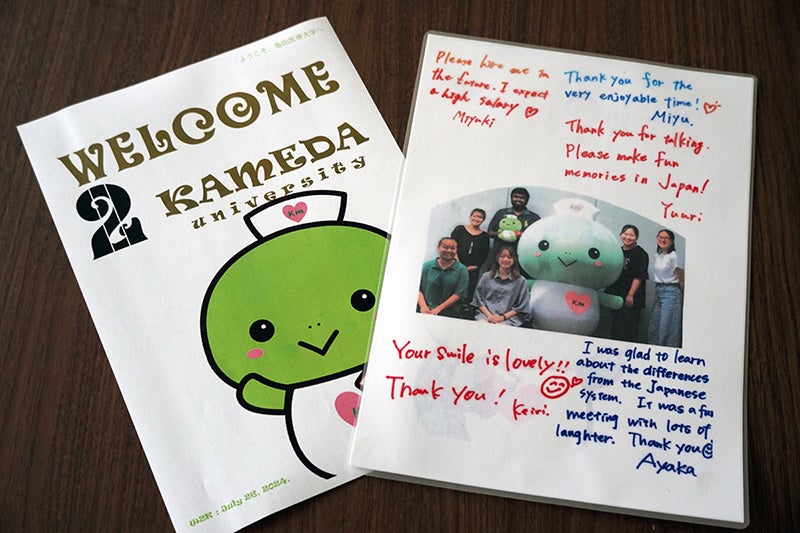 ようこそ、亀田医療大学へ
WELCOME
2 KAMEDA
university
KM
KM
July 26. 2024.
Please hire me in
the future. I expect
a high salary
Miyuki
Thank you for the
very enjoyable time!
Miyu.
Thank you for talking.
Please make fun
memories in Japan!
Yuuri
KM
KM
Your smile is lovely!!
Thank you!
Keiri.
I was glad to learn
about the differences
from the Japanese
system. It was a fun
meeting with lots of
laughter. Thank you
Ayaka